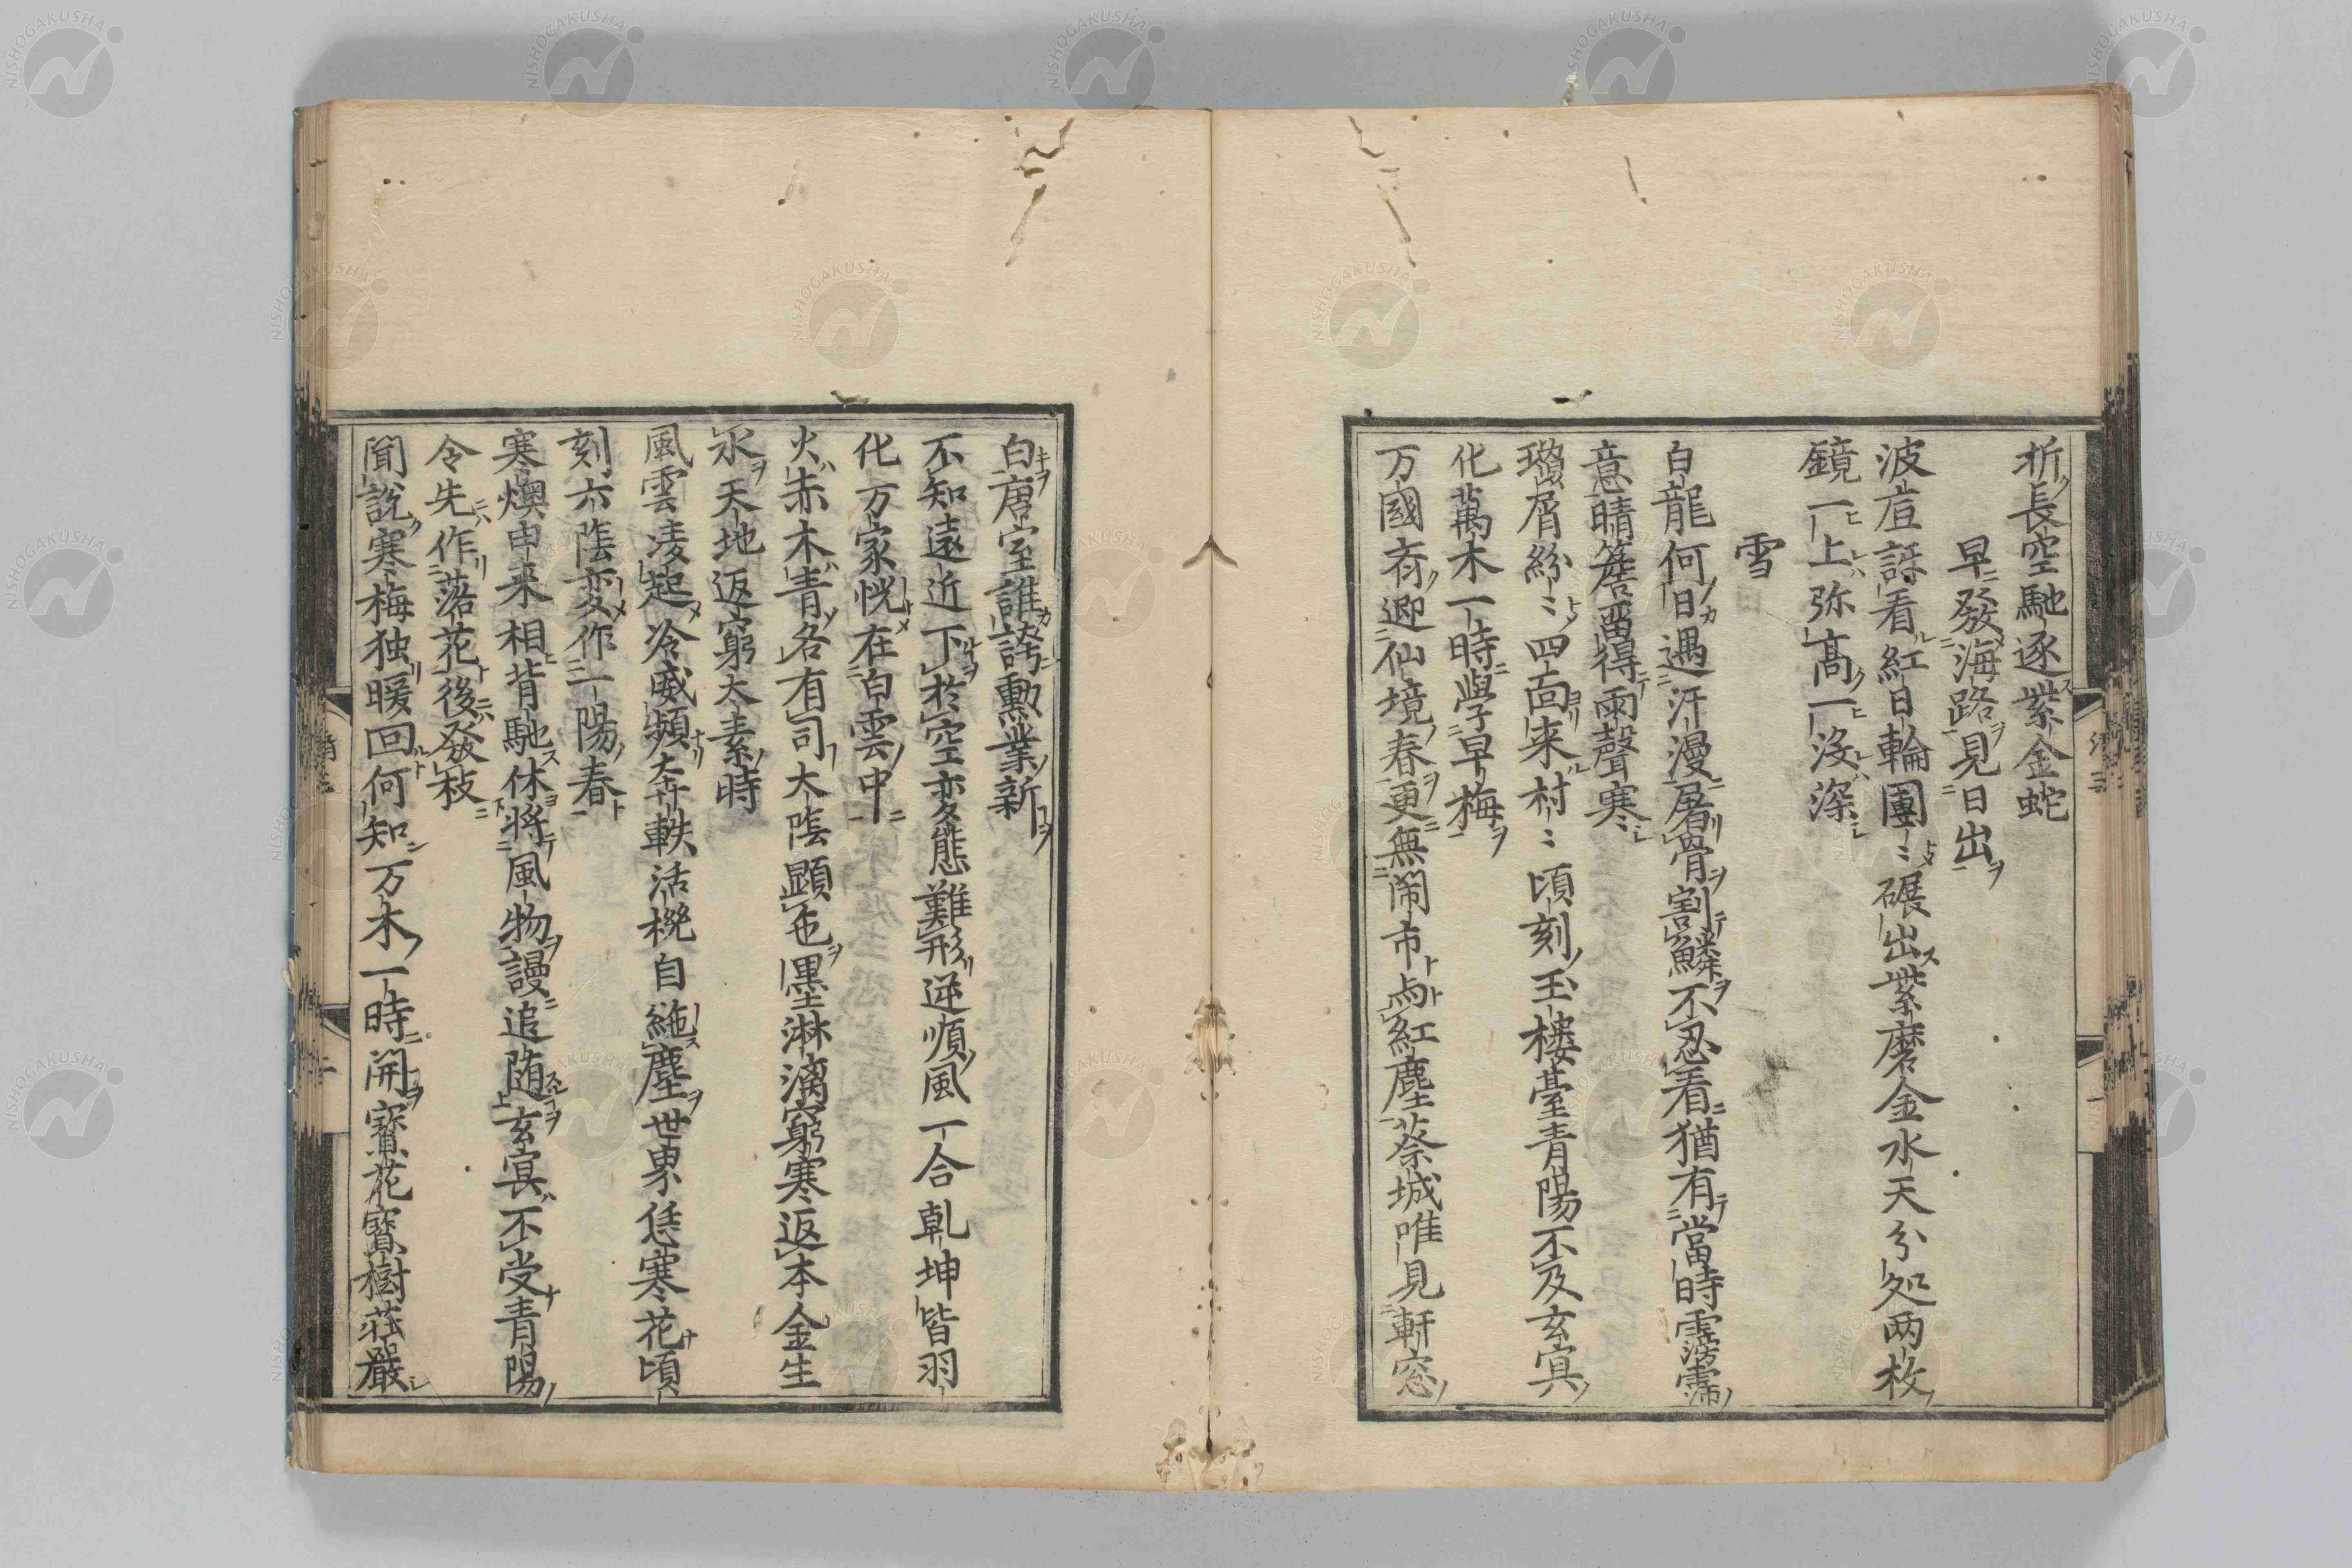 折長空馳逐紫金蛇
早發海路見日出
波底試看紅日輪團〻碾出紫磨金水天分処两枚
鏡一上弥髙一沒深
雪
白龍何日遇汗漫屠骨割鱗不忍看猶有當時霶霈
意晴簷畱得雨聲寒
瓊屑紛〻四面来村〻頃刻玉樓䑓青陽不及玄冥
化萬木一時學早梅
万國斉迎仙境春更無閙市与紅塵蔡城唯見軒窓
白唐室誰誇勳業新
不知遠近下於空変態難形逆順風一合乾坤皆羽
化万家恍在白雲中
火赤木青各有司大陰顕色墨淋漓窮寒返本金生
水天地返窮太素時
風雲凌起冷威頻奔軼活機自絁塵世界恁寒花頃
刻六陰変作一陽春
寒燠由来相背馳休将風物謾追随玄冥不受青陽
令先作落花後發枝
聞説寒梅独暖回何知万木一時開寳花寳樹莊嚴